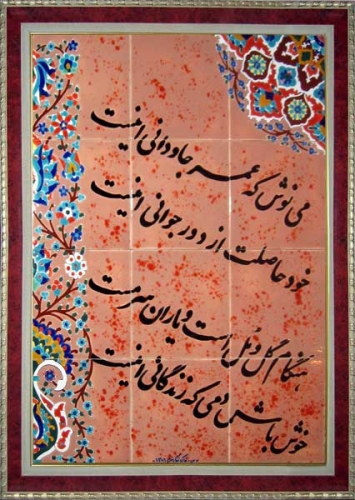 می نوش که عمر جاودانی اینست
خود حاصلت از دور جوانی اینست
هنگام گل و مُل است و یاران سرمست
خوش باش دمی که زندگانی اینست